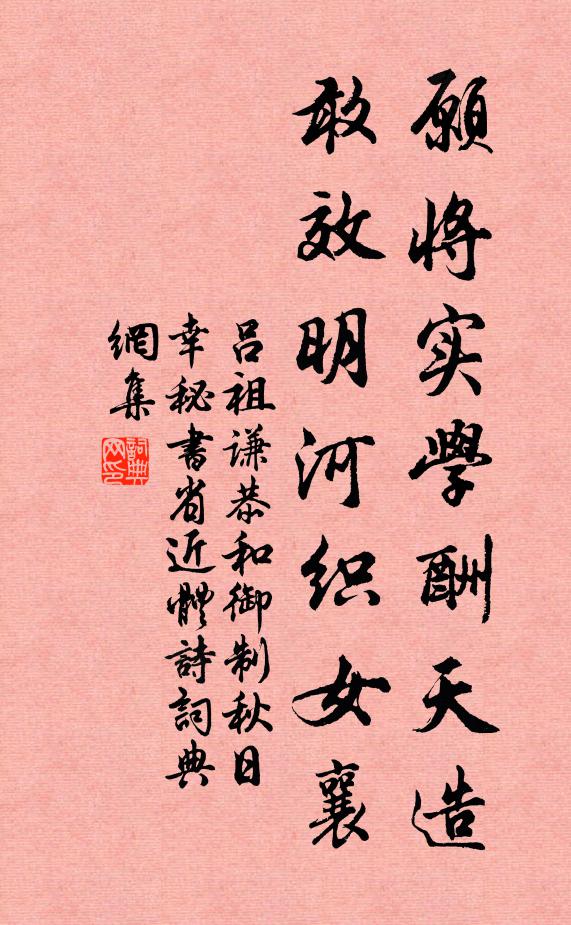 願將实學酬天造
敢效明河织女襄
吕祖谦恭和御制秋日
幸秘書省近體詩詞典
網集
詞典
网印